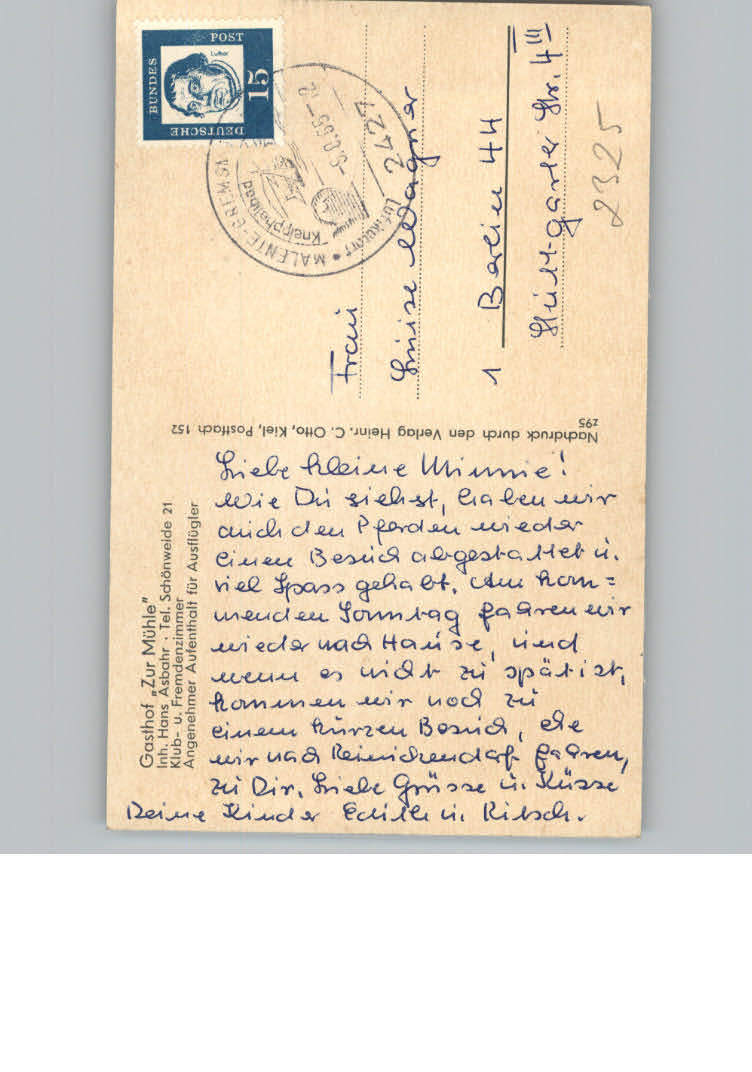 Gasthof „Zur Mühle"
Inh. Hans Asbahr · Tel. Schönweide 21
Klub- u. Fremdenzimmer
Angenehmer Aufenthalt für Ausflügler
Liebe kleine Minnie!
Wie Du siehst, haben wir
auch den Pferden wieder
einen Besuch abgestattet u.
viel Spass gehabt. Am kom=
menden Sonntag fahren wir
wieder nach Hause, und
wenn es nicht zu spät ist,
kommen wir noch zu
einem kurzen Besuch, ehe
wir nach Reinickendorf fahren,
zu Dir. Liebe Grüsse u. Küsse
Deine Kinder Edith u.
Nachdruck durch den Verlag Heinr. C. Otto, Kiel, Postfach 152
z95
DEUTSCHE BUNDESPOST
Luther
15
2427
MALENTE-GREMSMÜHLEN
Luftkurort
Kneippheilbad
Frau
Luise Wagner
1 Berlin 44
Stuttgarter Str. 4 III
2325